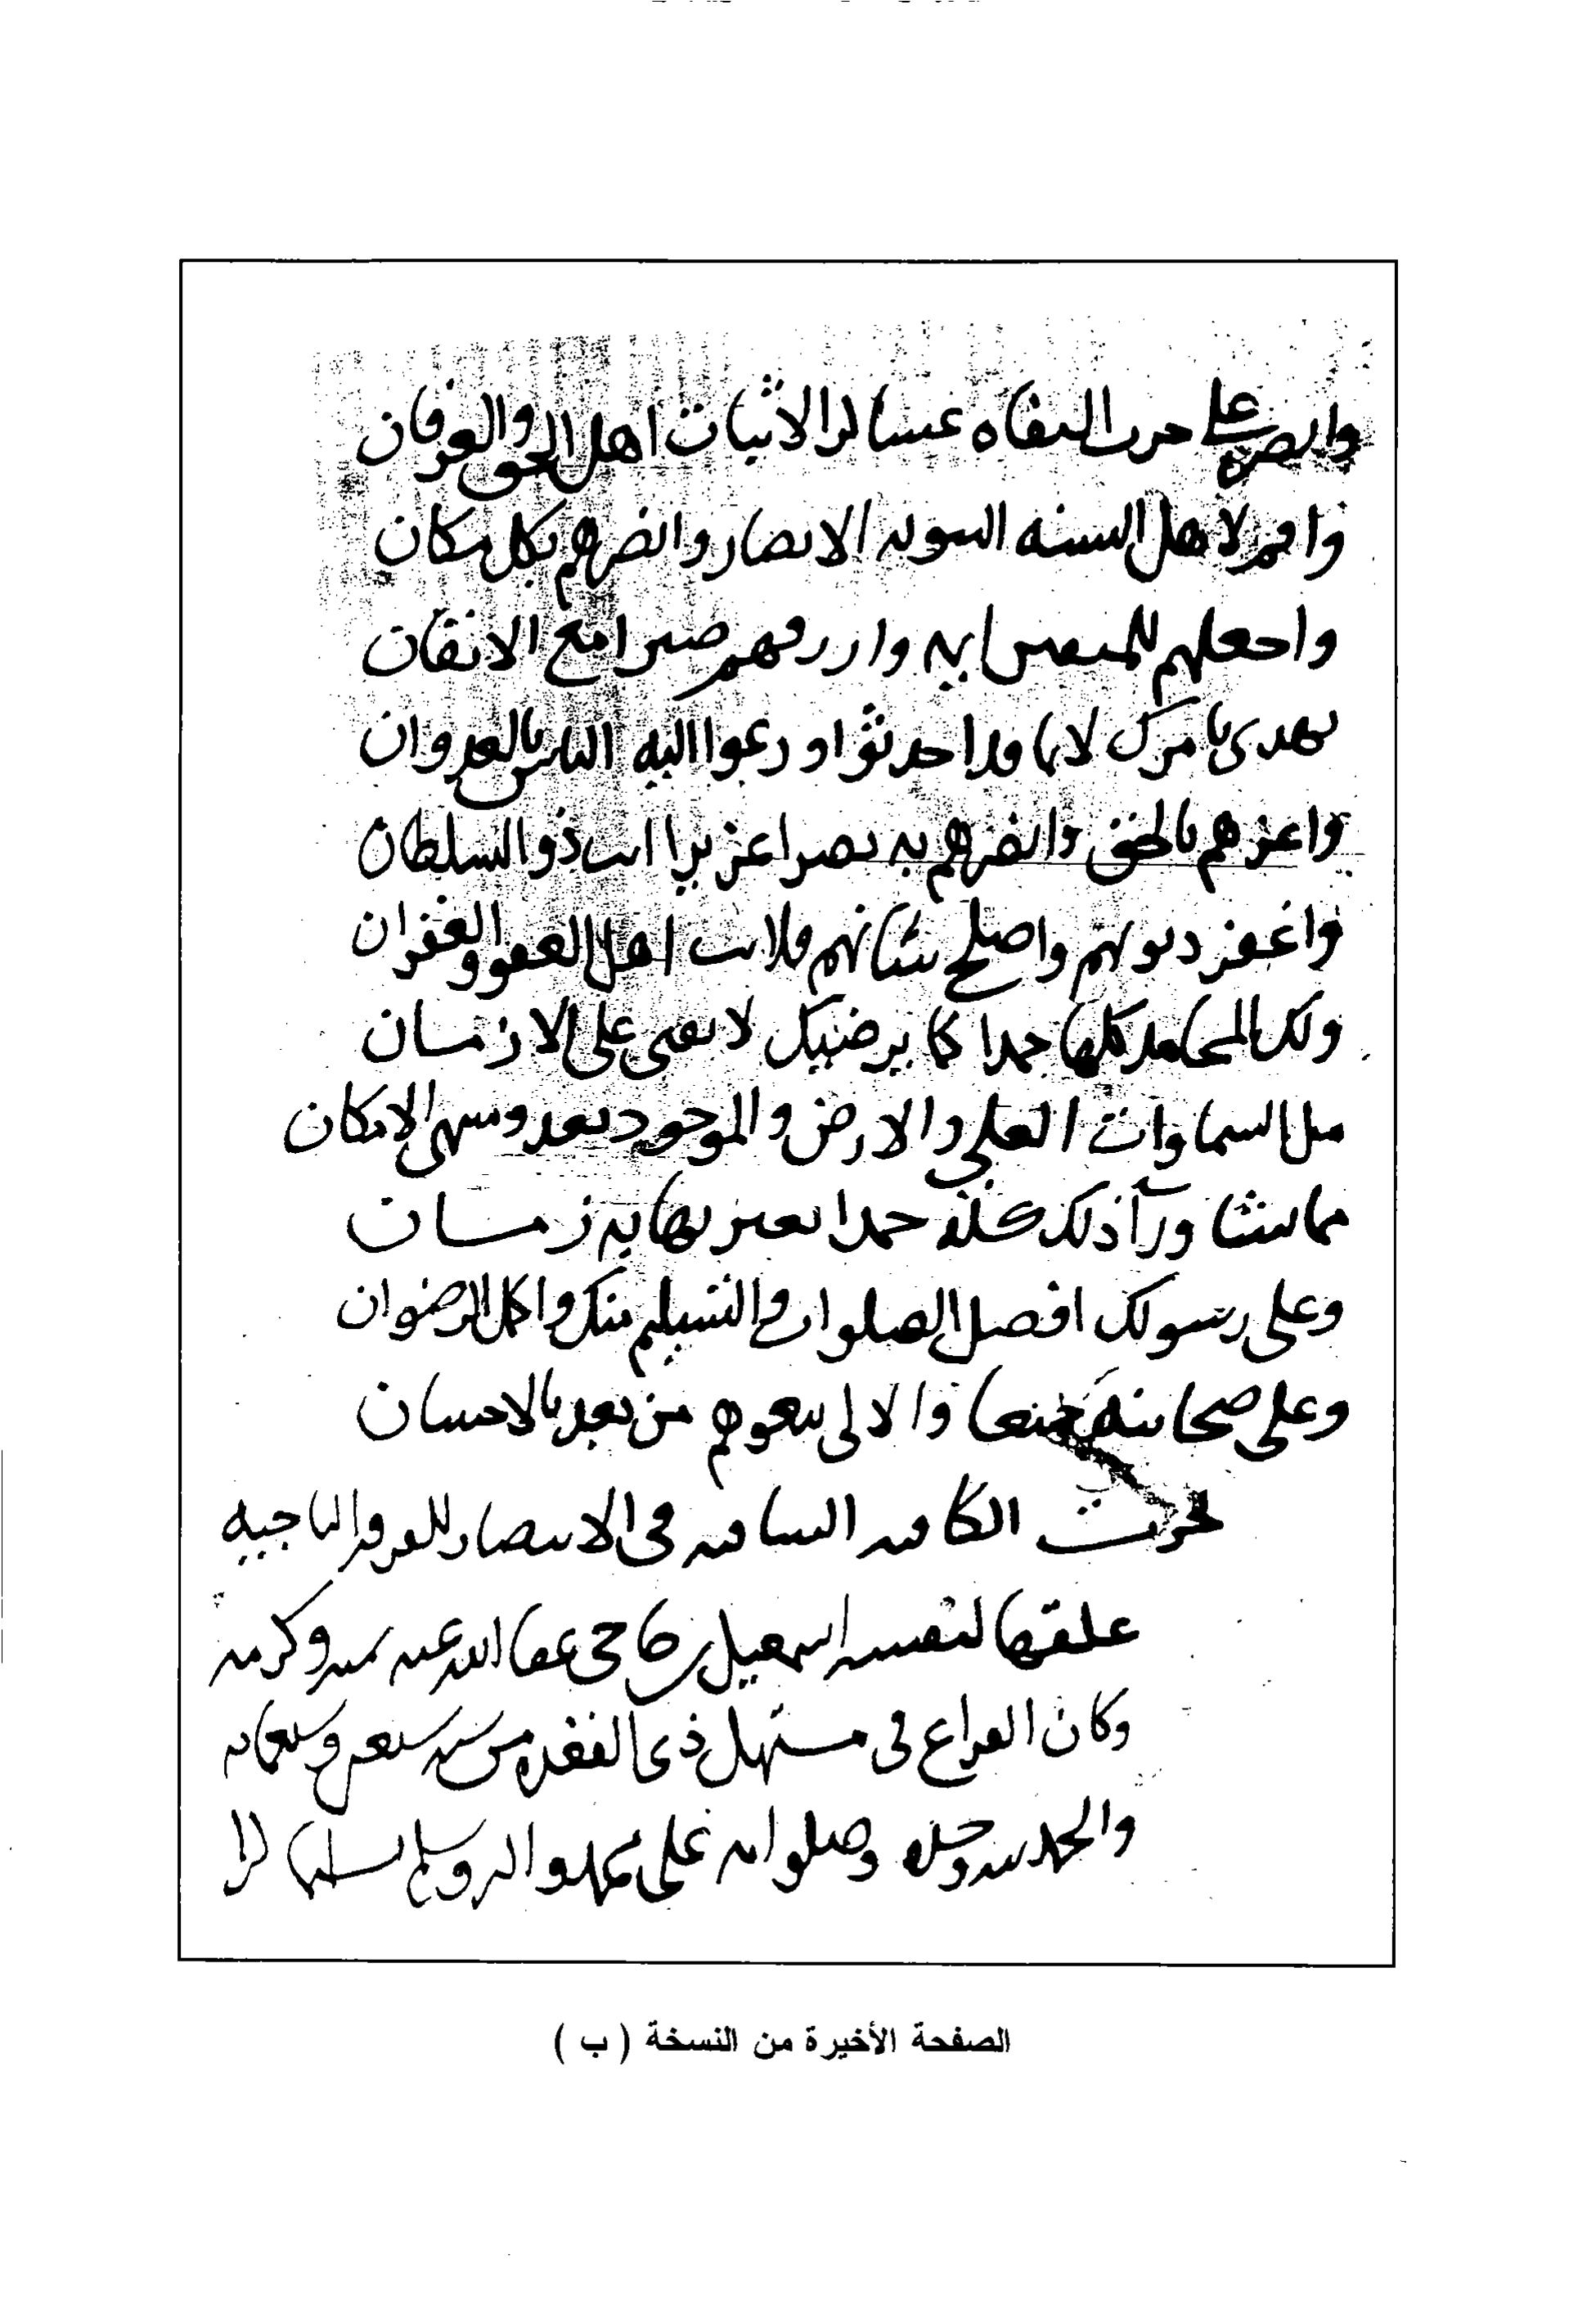 وانصره على حزب النفاة عساكر الاثبات اهل الحق والعرفان
واقم لاهل السنه النبويه الانصار وانصرهم بكل مكان
واجعلهم للمتقين ايمه وارزقهم صبرا مع الايقان
تهدي بامرك لا بما قد احدثوا ودعوا اليه الناس بالعدوان
واعزهم بالحق وانصرهم به نصرا عزيزا انت ذو السلطان
واغفر ذنوبهم واصلح شانهم فلانت اهل العفو والغفران
ولك المحامد كلها حمدا كما يرضيك لا يفنى على الازمان
مل السماوات العلى والارض والموجود بعد ومنتهى الامكان
مما تشا ورآ ذلك كله حمدا بغير نهايه زمان
وعلى رسولك افضل الصلوات والتسليم منك واكمل الرضوان
وعلى صحابته جميعا والالى تبعوهم من بعد بالاحسان
نجزت الكافيه الشافيه في الانتصار للفرقه الناجيه
علقها لنفسه اسمعيل بن حاجى عفا الله عنه بمنه وكرمه
وكان الفراغ فى مستهل ذى القعده من سنه وسبعمايه
والحمد لله وحده وصلواته على محمد واله وسلم تسليما كثيرا
الصفحة الأخيرة من النسخة ( ب )